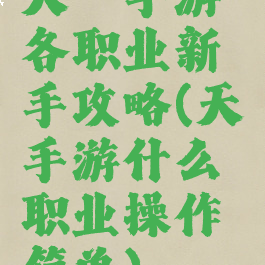 天 手游
各职业新
手攻略(天
手游什么
职业操作
简单)